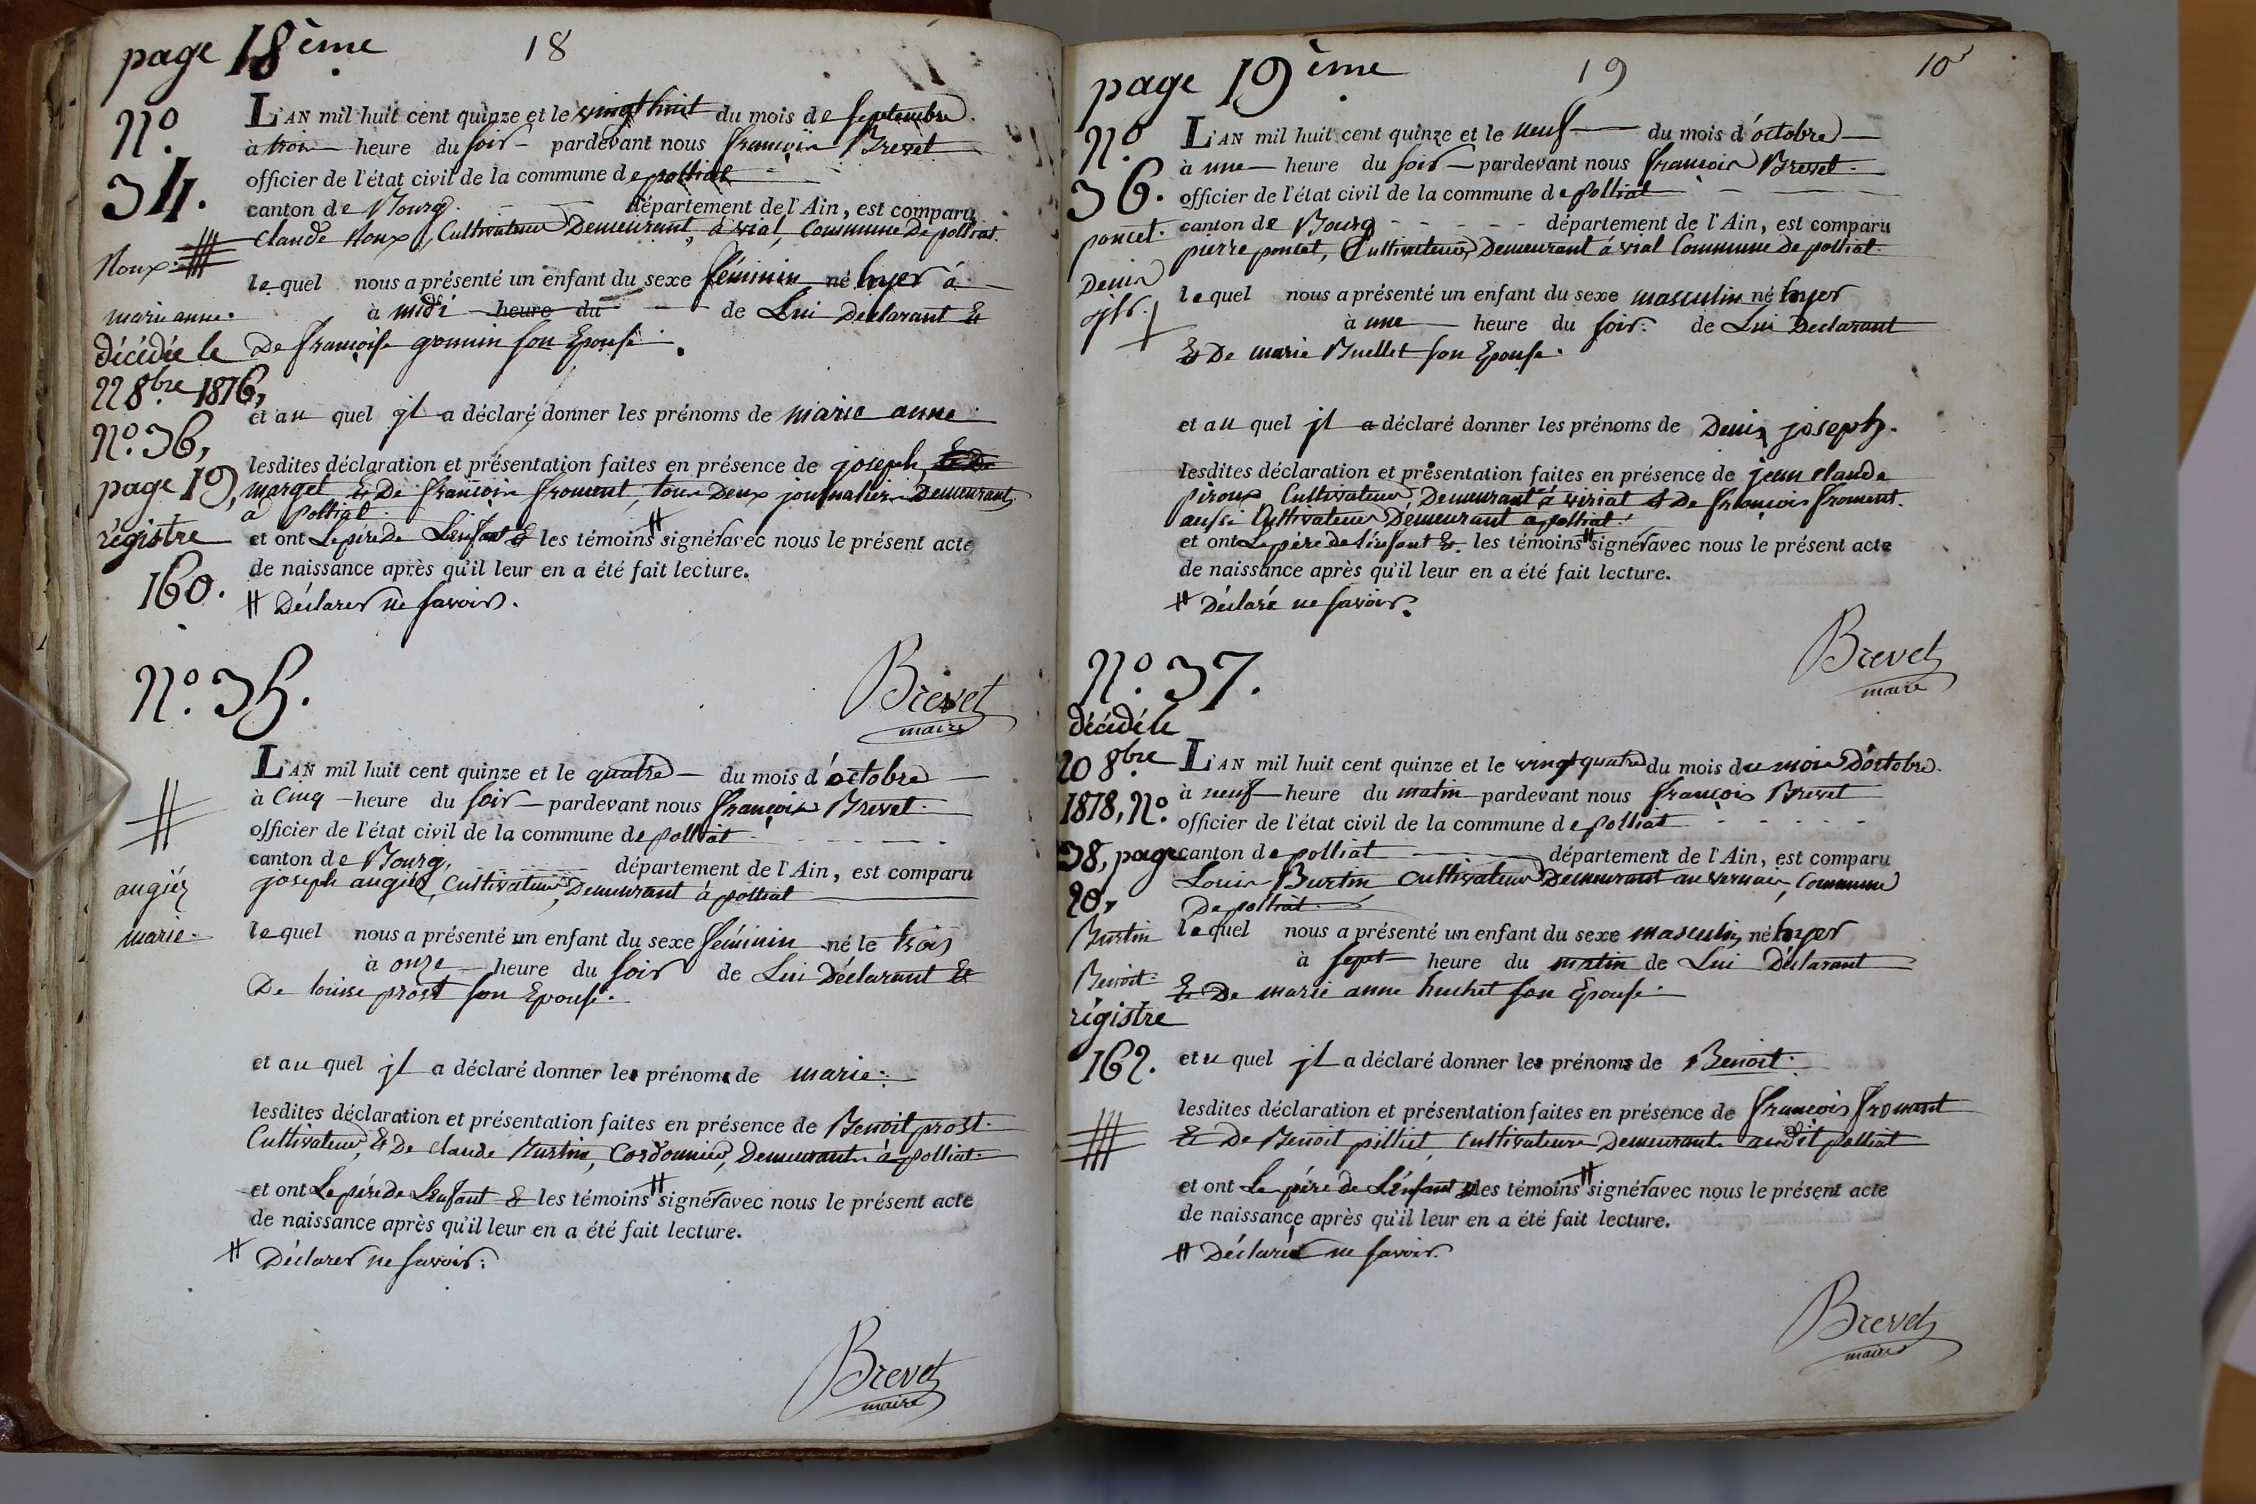 page 18ème
18
N.º 34.
Noux.
marie anne.
décédée le
22 8.bre 1876,
N.º 36,
page 19,
régistre
160.
L'AN mil huit cent quinze et le vingt huit du mois de septembre
à trois heure du soir pardevant nous françois Brevet
officier de l'état civil de la commune de polliat
canton de Bourg. département de l'Ain, est comparu
Claude Noux, Cultivateur Demeurant, à vial, Commune De polliat.
lequel nous a présenté un enfant du sexe féminin né hyer à
à midi heure du de Lui Déclarant Et
De françoise gomin son Epouse.
et au quel jl a déclaré donner les prénoms de marie anne.
lesdites déclaration et présentation faites en présence de joseph
marget & De françois froment, tous Deux journaliers Demeurant
à polliat.
et ont Le père de L'enfant & les témoins # signér avec nous le présent acte
de naissance après qu'il leur en a été fait lecture.
# Déclarer ne savoir.
Brevet
maire
N.º 35.
augiéz
marie.
L'AN mil huit cent quinze et le quatre du mois d'octobre
à Cinq heure du soir pardevant nous françois Brevet
officier de l'état civil de la commune de polliat
canton de Bourg. département de l'Ain, est comparu
joseph augiéz, Cultivateur, Demeurant à polliat
lequel nous a présenté un enfant du sexe féminin né le trois
à onze heure du soir de Lui Déclarant Et
De louise prost son Epouse.
et au quel jl a déclaré donner les prénoms de marie.
lesdites déclaration et présentation faites en présence de Benoit prost.
Cultivateur, & De Claude Burtin, Cordonnier, Demeurants à polliat.
et ont Le père de L'enfant & les témoins # signér avec nous le présent acte
de naissance après qu'il leur en a été fait lecture.
# Déclarer ne savoir.
Brevet
maire
page 19ème
19
10
N.º 36.
poncet.
Denis
jph.
L'AN mil huit cent quinze et le neuf du mois d'octobre
à une heure du soir pardevant nous françois Brevet
officier de l'état civil de la commune de polliat
canton de Bourg département de l'Ain, est comparu
pierre poncet, Cultivateur, Demeurant à vial Commune De polliat.
lequel nous a présenté un enfant du sexe masculin né hyer
à une heure du soir. de Lui Déclarant
& De marie Buellet son Epouse.
et au quel jl a déclaré donner les prénoms de Denis joseph.
lesdites déclaration et présentation faites en présence de jean Claude
piroux Cultivateur, Demeurant à viriat & De françois froment.
aussi Cultivateur Demeurant à polliat.
et ont Le père de l'enfant &. les témoins # signér avec nous le présent acte
de naissance après qu'il leur en a été fait lecture.
# Déclaré ne savoir.
Brevet
maire
N.º 37.
décédé le
20 8.bre
1878, N.º
38, page
20,
Burtin
Benoit.
régistre
162.
L'AN mil huit cent quinze et le vingt quatre du mois du mois D'octobre.
à neuf heure du matin pardevant nous françois Brevet
officier de l'état civil de la commune de polliat
canton de polliat département de l'Ain, est comparu
Louis Burtin Cultivateur Demeurant au vernais, Commune
De polliat.
lequel nous a présenté un enfant du sexe masculin né hyer
à sept heure du matin de Lui Déclarant
& De marie anne huchet son Epouse.
et u quel jl a déclaré donner les prénoms de Benoit.
lesdites déclaration et présentation faites en présence de françois fromant
& De Benoit pilliet, Cultivateurs Demeurants audit polliat
et ont Le père de L'enfant & les témoins # signér avec nous le présent acte
de naissance après qu'il leur en a été fait lecture.
# Déclaré ne savoir.
Brevet
maire